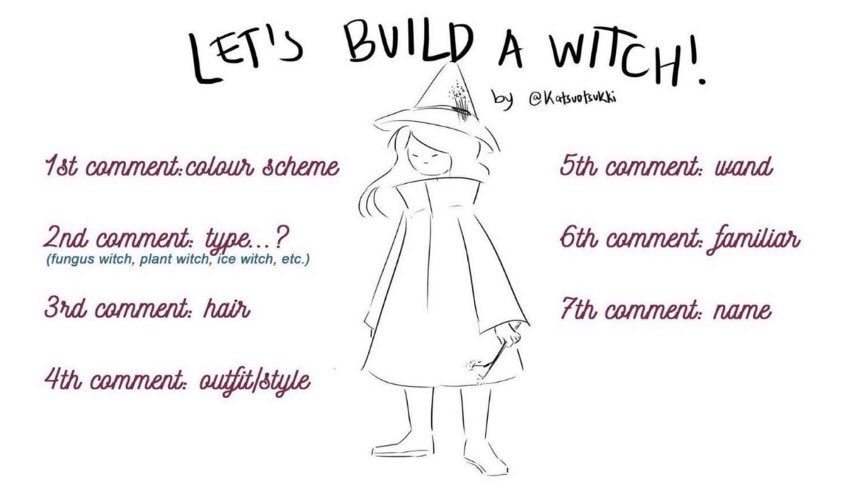 LET'S BUILD A WITCH!
by @Katsuotsukki
1st comment: colour scheme
2nd comment: type...?
(fungus witch, plant witch, ice witch, etc.)
3rd comment: hair
4th comment: outfit/style
5th comment: wand
6th comment: familiar
7th comment: name